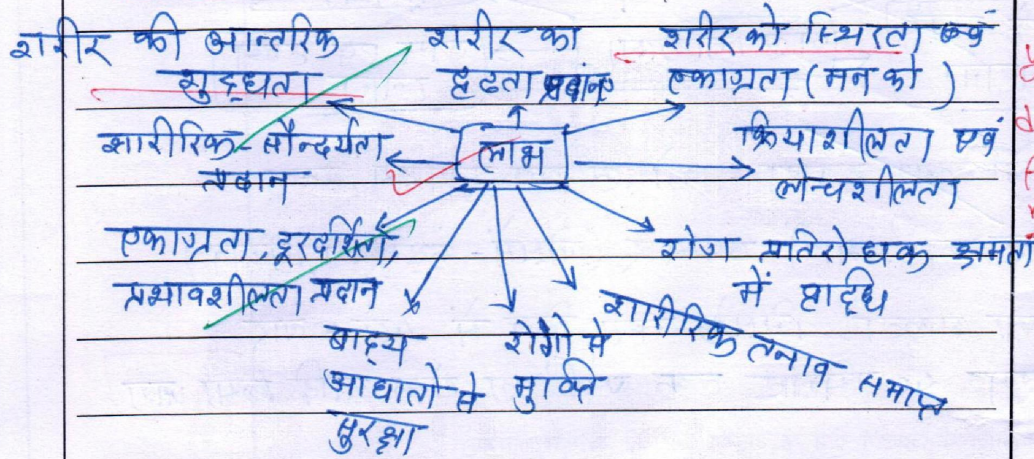 शरीर की आन्तरिक शुद्धता
शरीर को दृढता प्रदान
शरीर को स्थिरता एवं एकाग्रता (मन को)
शारीरिक सौन्दर्यता प्रदान
लाभ
क्रियाशीलता एवं लोचशीलता
एकाग्रता, दूरदर्शिता, प्रभावशीलता प्रदान
रोग प्रतिरोधक क्षमता में वृद्धि
बाह्य आघातो से सुरक्षा
रोगों से मुक्ति
शारीरिक तनाव समाप्त